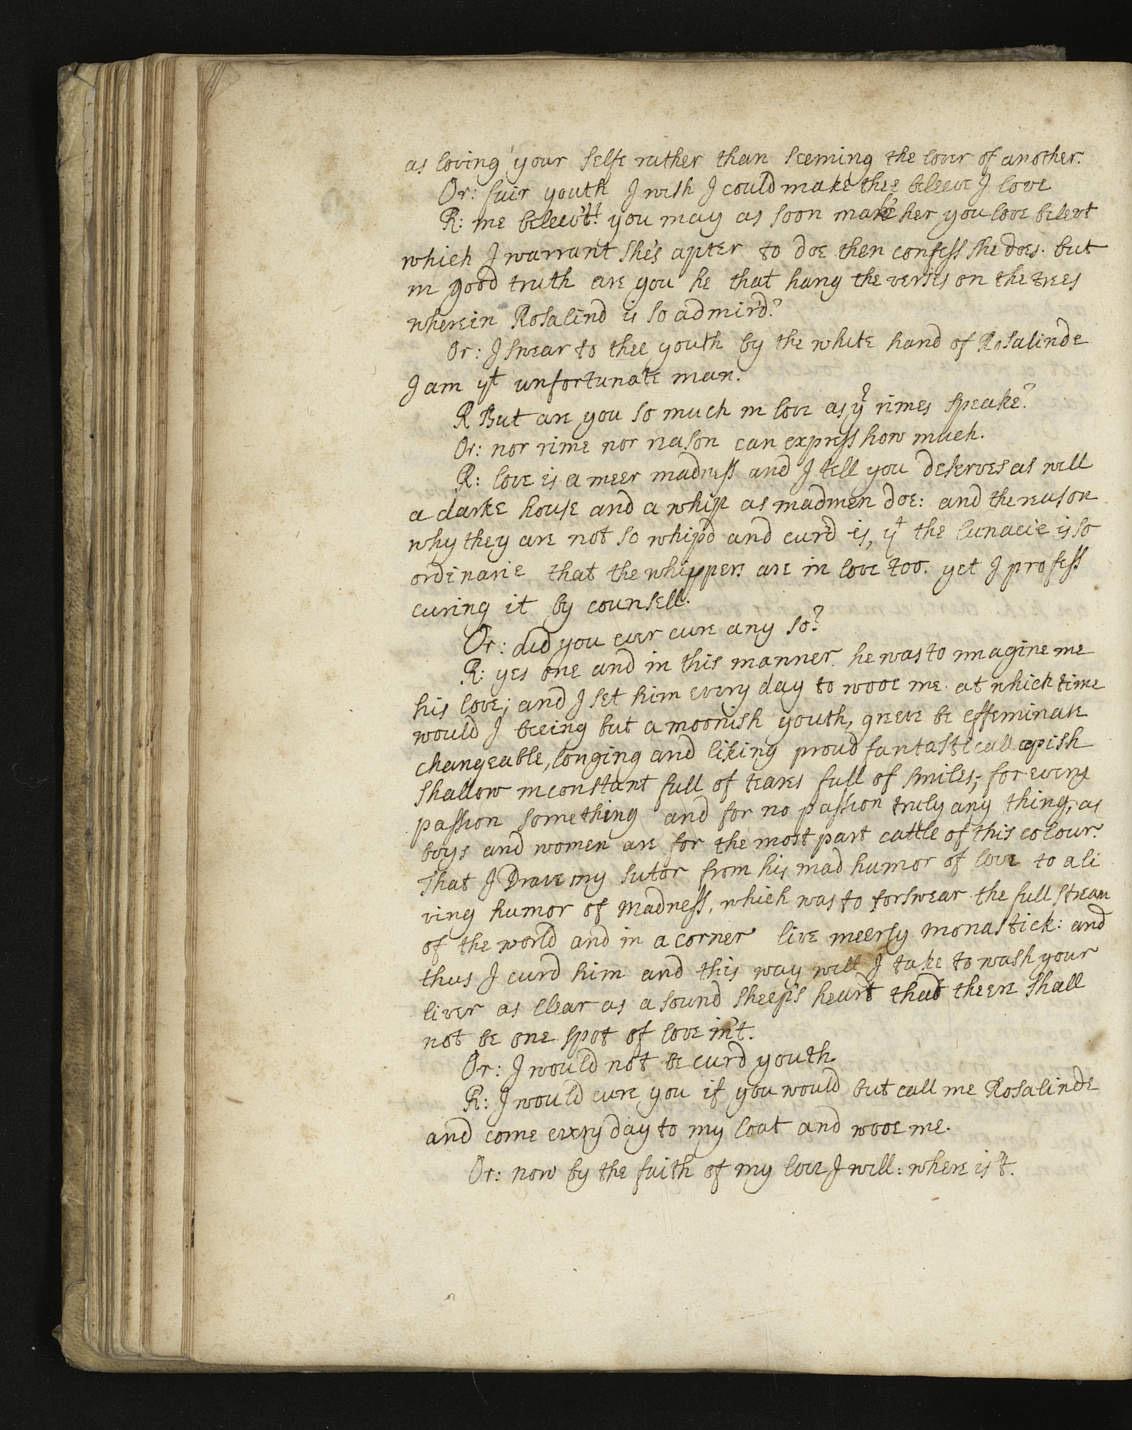 as loving your selfe rather than seeming the lover of another.
Or: fair youth I wish I could make thee beleeve I love
R: me beleev't! you may as soon make her you love belevt
which I warrant she's apter to doe then confess she does. but
in good truth are you he that hang the verses on the trees
wherein Rosalind is so admir'd?
Or: I swear to thee youth by the white hand of Rosalinde
I am yt unfortunate man.
R But are you so much in love as yr rimes speake?
Or: nor rime nor reason can express how much.
R: love is a meer madness and I tell you deserves as well
a darke house and a whip as madmen doe: and the reason
why they are not so whip'd and cur'd is, yt the lunacie is so
ordinarie that the whippers are in love too. yet I profess
curing it by counsell.
Or: did you ever cure any so?
R: yes one and in this manner. he was to imagine me
his love; and I set him every day to wooe me. at which time
would I beeing but a moonish youth, greeve be effeminate
changeable, longing and liking proud fantasticall apish
shallow inconstant full of teares full of smiles; for every
passion something and for no passion truly any thing, as
boys and women are for the most part cattle of this colour.
that I Drave my sutor from his mad humor of love to a li
ving humor of madness, which was to forswear the full stream
of the world and in a corner live meerly monastick: and
thus I curd him and this way will I take to wash your
liver as clear as a sound sheep's heart that there shall
not be one spot of love in't.
Or: I would not be curd youth.
R: I would cure you if you would but call me Rosalinde
and come every day to my coat and wooe me.
Or: now by the faith of my love I will: where is't.